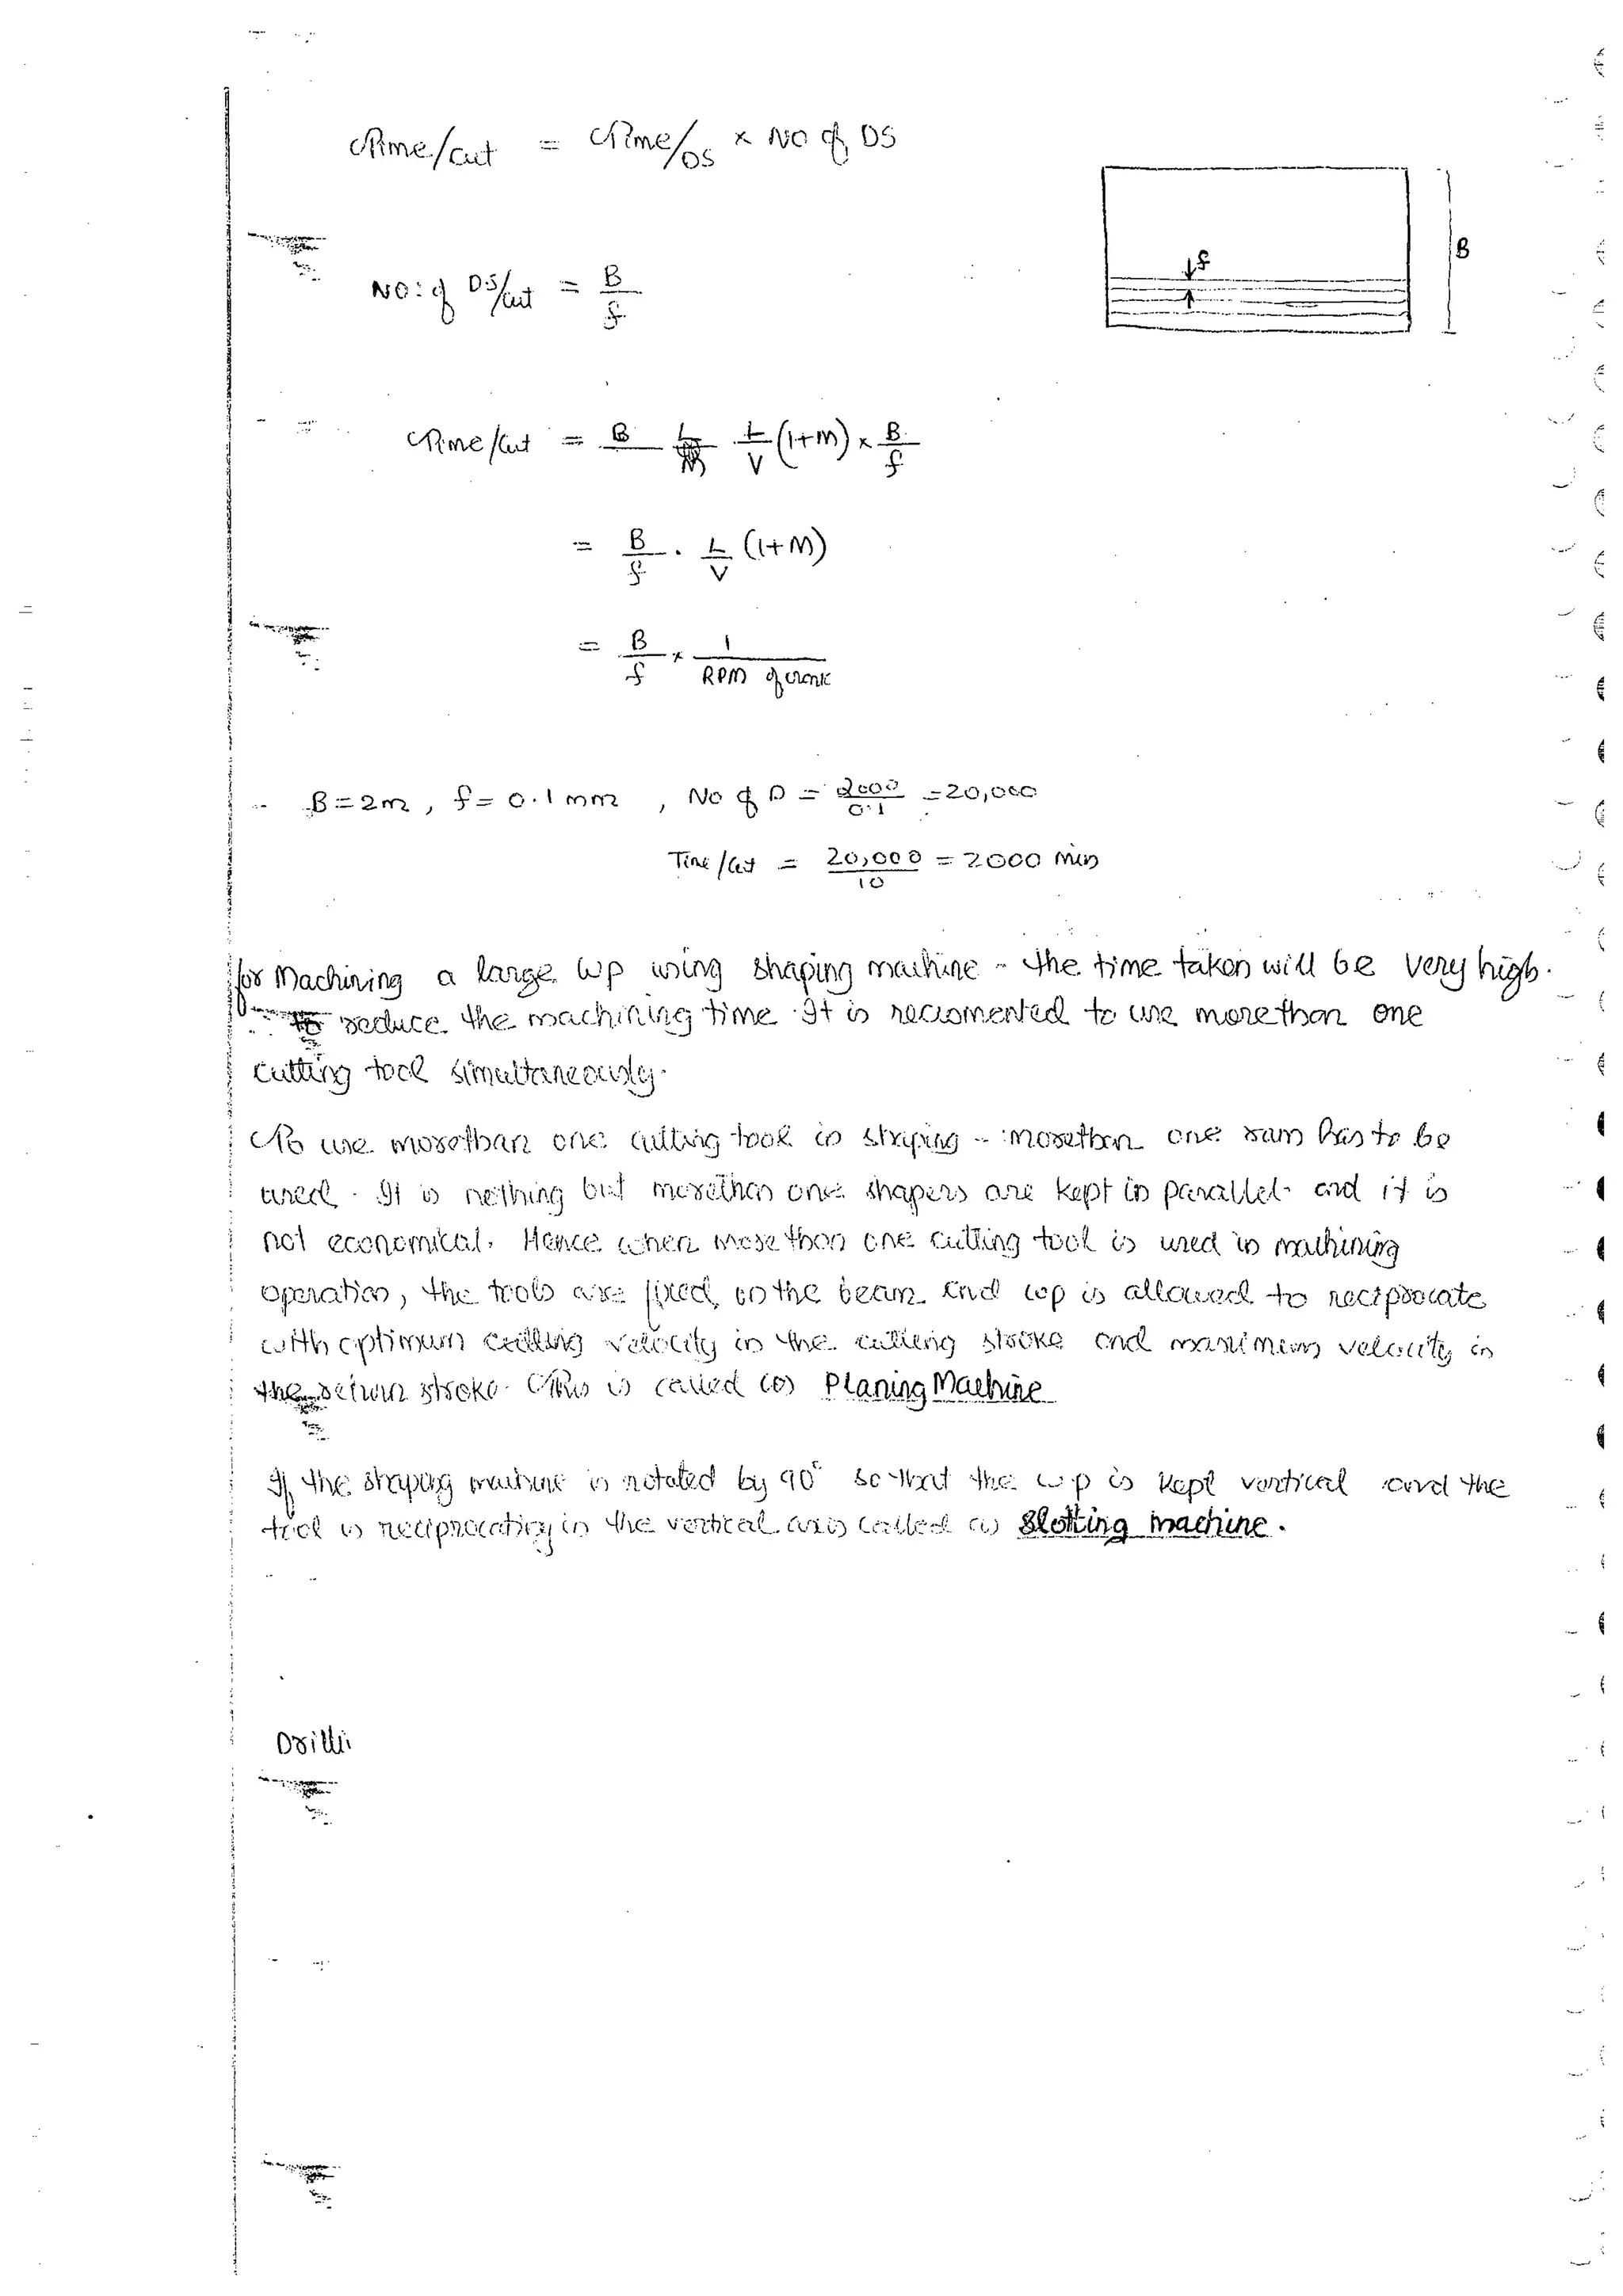 Time/cut = Time/DS × No of DS
f
B
No: of DS/cut = B/f
Time/cut = B L/V (1+M) × B/f
= B/f . L/V (1+M)
= B/f × 1/RPM of crank
B = 2m, f = 0.1 mm , No of D = 2000/0.1 = 20,000
Time/cut = 20,000/10 = 2000 min
for Machining a large wp using shaping machine - the time taken will be very high.
To reduce the machining time. It is recomented to use morethan one
cutting tool simultaneously.
To use morethan one cutting tool in shaping - morethan one ram has to be
used. It is nothing but morethan one shapers are kept in parallel and it is
not economical. Hence when more than one cutting tool is used in machining
operation, the tools are fixed on the beam and wp is allowed to reciprocate
with optimum cutting velocity in the cutting stroke and maximum velocity in
the return stroke. This is called as Planing Machine
If the shaping machine is rotated by 90° so that the wp is kept vertical and the
tool is reciprocating in the vertical axis called as Slotting machine.
Drilli